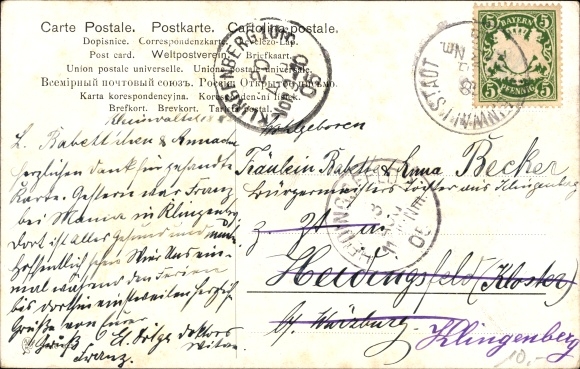 Carte Postale. Postkarte. Cartolina postale.
Dopisnice. Correspondenzkarte. Levelezö-Lap.
Post card. Weltpostverein. Briefkaart.
Union postale universelle. Unione postale universale.
Всемірный почтовый союзъ. Россія Открытое письмо.
Karta korespondencyjna. Korespondenční lístek.
Brefkort. Brevkort. Tarjeta postal.
BAYERN
5 5
PFENNIG
KLINGENBERG
L. Babettchen & Annachen
herzlichen Dank für gesandte
Karte. Gestern war Franz
bei Mama in Klingenberg
Dort ist alles Gesund und
Hoffentlich sehen Wir uns ein-
mal während den Ferien
bis dorthin einstweilen herzlich
Grüße von Euer
Gruß
Franz.
Wohlgeboren
Fräulein Babett & Anna Becker
Bürgermeisters Töchter aus Klingenberg
z. Zt. in
Heidingsfeld (Kloster)
b/ Würzburg.
Klingenberg
10,-